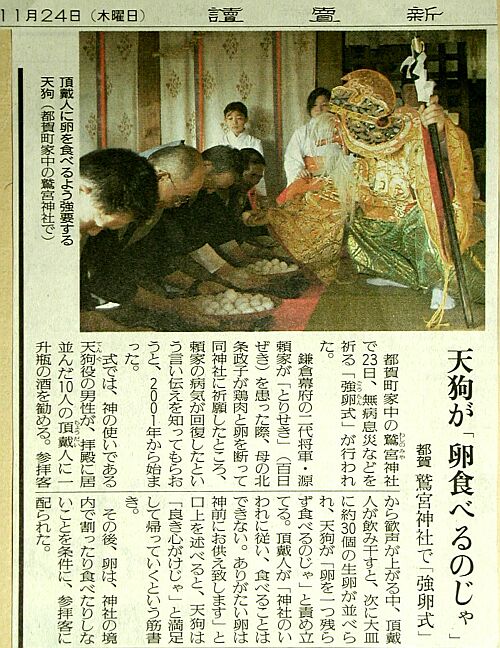 11月24日（木曜日）
讀賣新
頂戴人に卵を食べるよう強要する
天狗（都賀町家中の鷲宮神社で）
天狗が「卵食べるのじゃ」
都賀 鷲宮神社で「強卵式」
都賀町家中の鷲宮神社
で23日、無病息災などを
祈る「強卵式」が行われ
た。
鎌倉幕府の二代将軍・源
頼家が「とりせき」（百日
ぜき）を患った際、母の北
条政子が鶏肉と卵を断って
同神社に祈願したところ、
頼家の病気が回復したとい
う言い伝えを知ってもらお
うと、2001年から始ま
った。
式では、神の使いである
天狗役の男性が、拝殿に居
並んだ10人の頂戴人に一
升瓶の酒を勧める。参拝客
から歓声が上がる中、頂戴
人が飲み干すと、次に大皿
に約30個の生卵が並べら
れ、天狗が「卵を一つ残ら
ず食べるのじゃ」と責め立
てる。頂戴人が「神社のい
われに従い、食べることは
できない。ありがたい卵は
神前にお供え致します」と
口上を述べると、天狗は
「良き心がけじゃ」と満足
して帰っていくという筋書
き。
その後、卵は、神社の境
内で割ったり食べたりしな
いことを条件に、参拝客に
配られた。